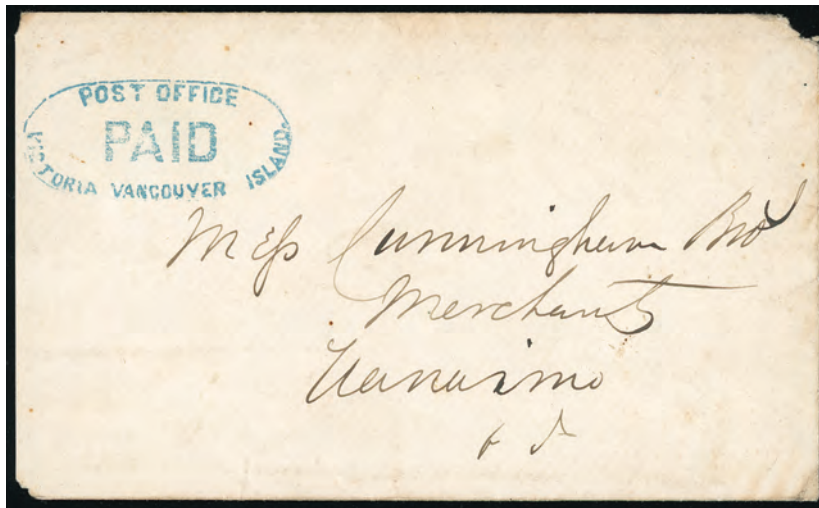 POST OFFICE
PAID
VICTORIA VANCOUVER ISLAND.
Mess Cunningham Bro
Merchants
Nanaimo